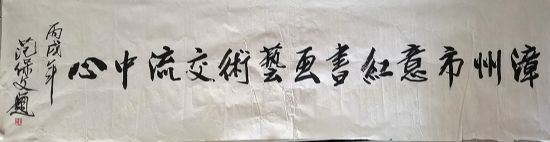 漳州市意紅書画藝術交流中心
丙戌年
范保文題